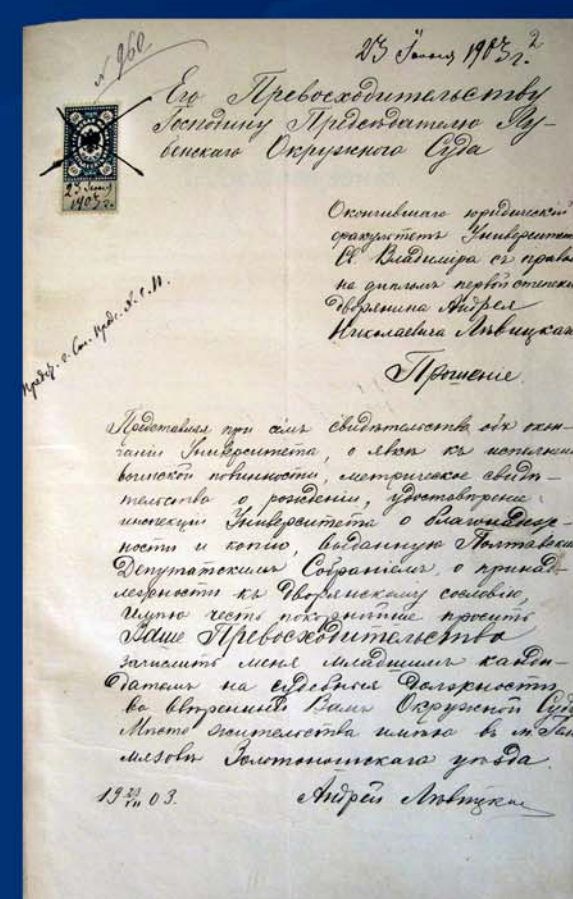 № 960
23 Іюня 1903 г.
2
Его Превосходительству
Господину Председателю Лу-
бенскаго Окружнаго Суда
23 Іюня
1903 г.
Окончившаго юридическій
факультетъ Университета
Св. Владиміра съ правом
на дипломъ первой степени
дворянина Андрея
Николаевича Лѣвицкаго
Прошеніе.
Представляя при семъ свидѣтельства объ окон-
чаніи Университета, о явкѣ къ исполненію
воинской повинности, метрическое свидѣ-
тельство о рожденіи, удостовѣреніе
инспекціи Университета о благонадеж-
ности и копію, выданную Полтавскимъ
Депутатскимъ Собраніемъ, о принад-
лежности къ дворянскому сословію,
имѣю честь покорнѣйше просить
Ваше Превосходительство
зачислить меня младшимъ канди-
датомъ на судебныя должности
во ввѣренный Вамъ Окружной Судъ
Место жительства имѣю въ м.
Золотоношскаго уѣзда.
19 23/VI 03. Андрей Лѣвицкій